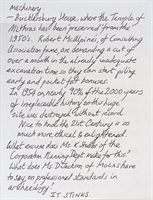 machinery.
– Bucklersbury House, where the Temple of
Mithras has been preserved from the
1950s. Robert McAlpines, of Consulting
Association fame, are demanding a cut of
over a month in the already inadequate
excavation time so they can start piling
early and protect profit bonuses.
In 1954 on nearly 90% of the 2000 years
of irreplaceable history on this huge
site was destroyed without record.
Nice to know the 21st Century is so
much more ethical & enlightened.
What excuse does Ms K. of the
Corporation Planning Dept. make for this?
What does Ms D of Molas have
to say on professional standards in
archaeology?
IT STINKS